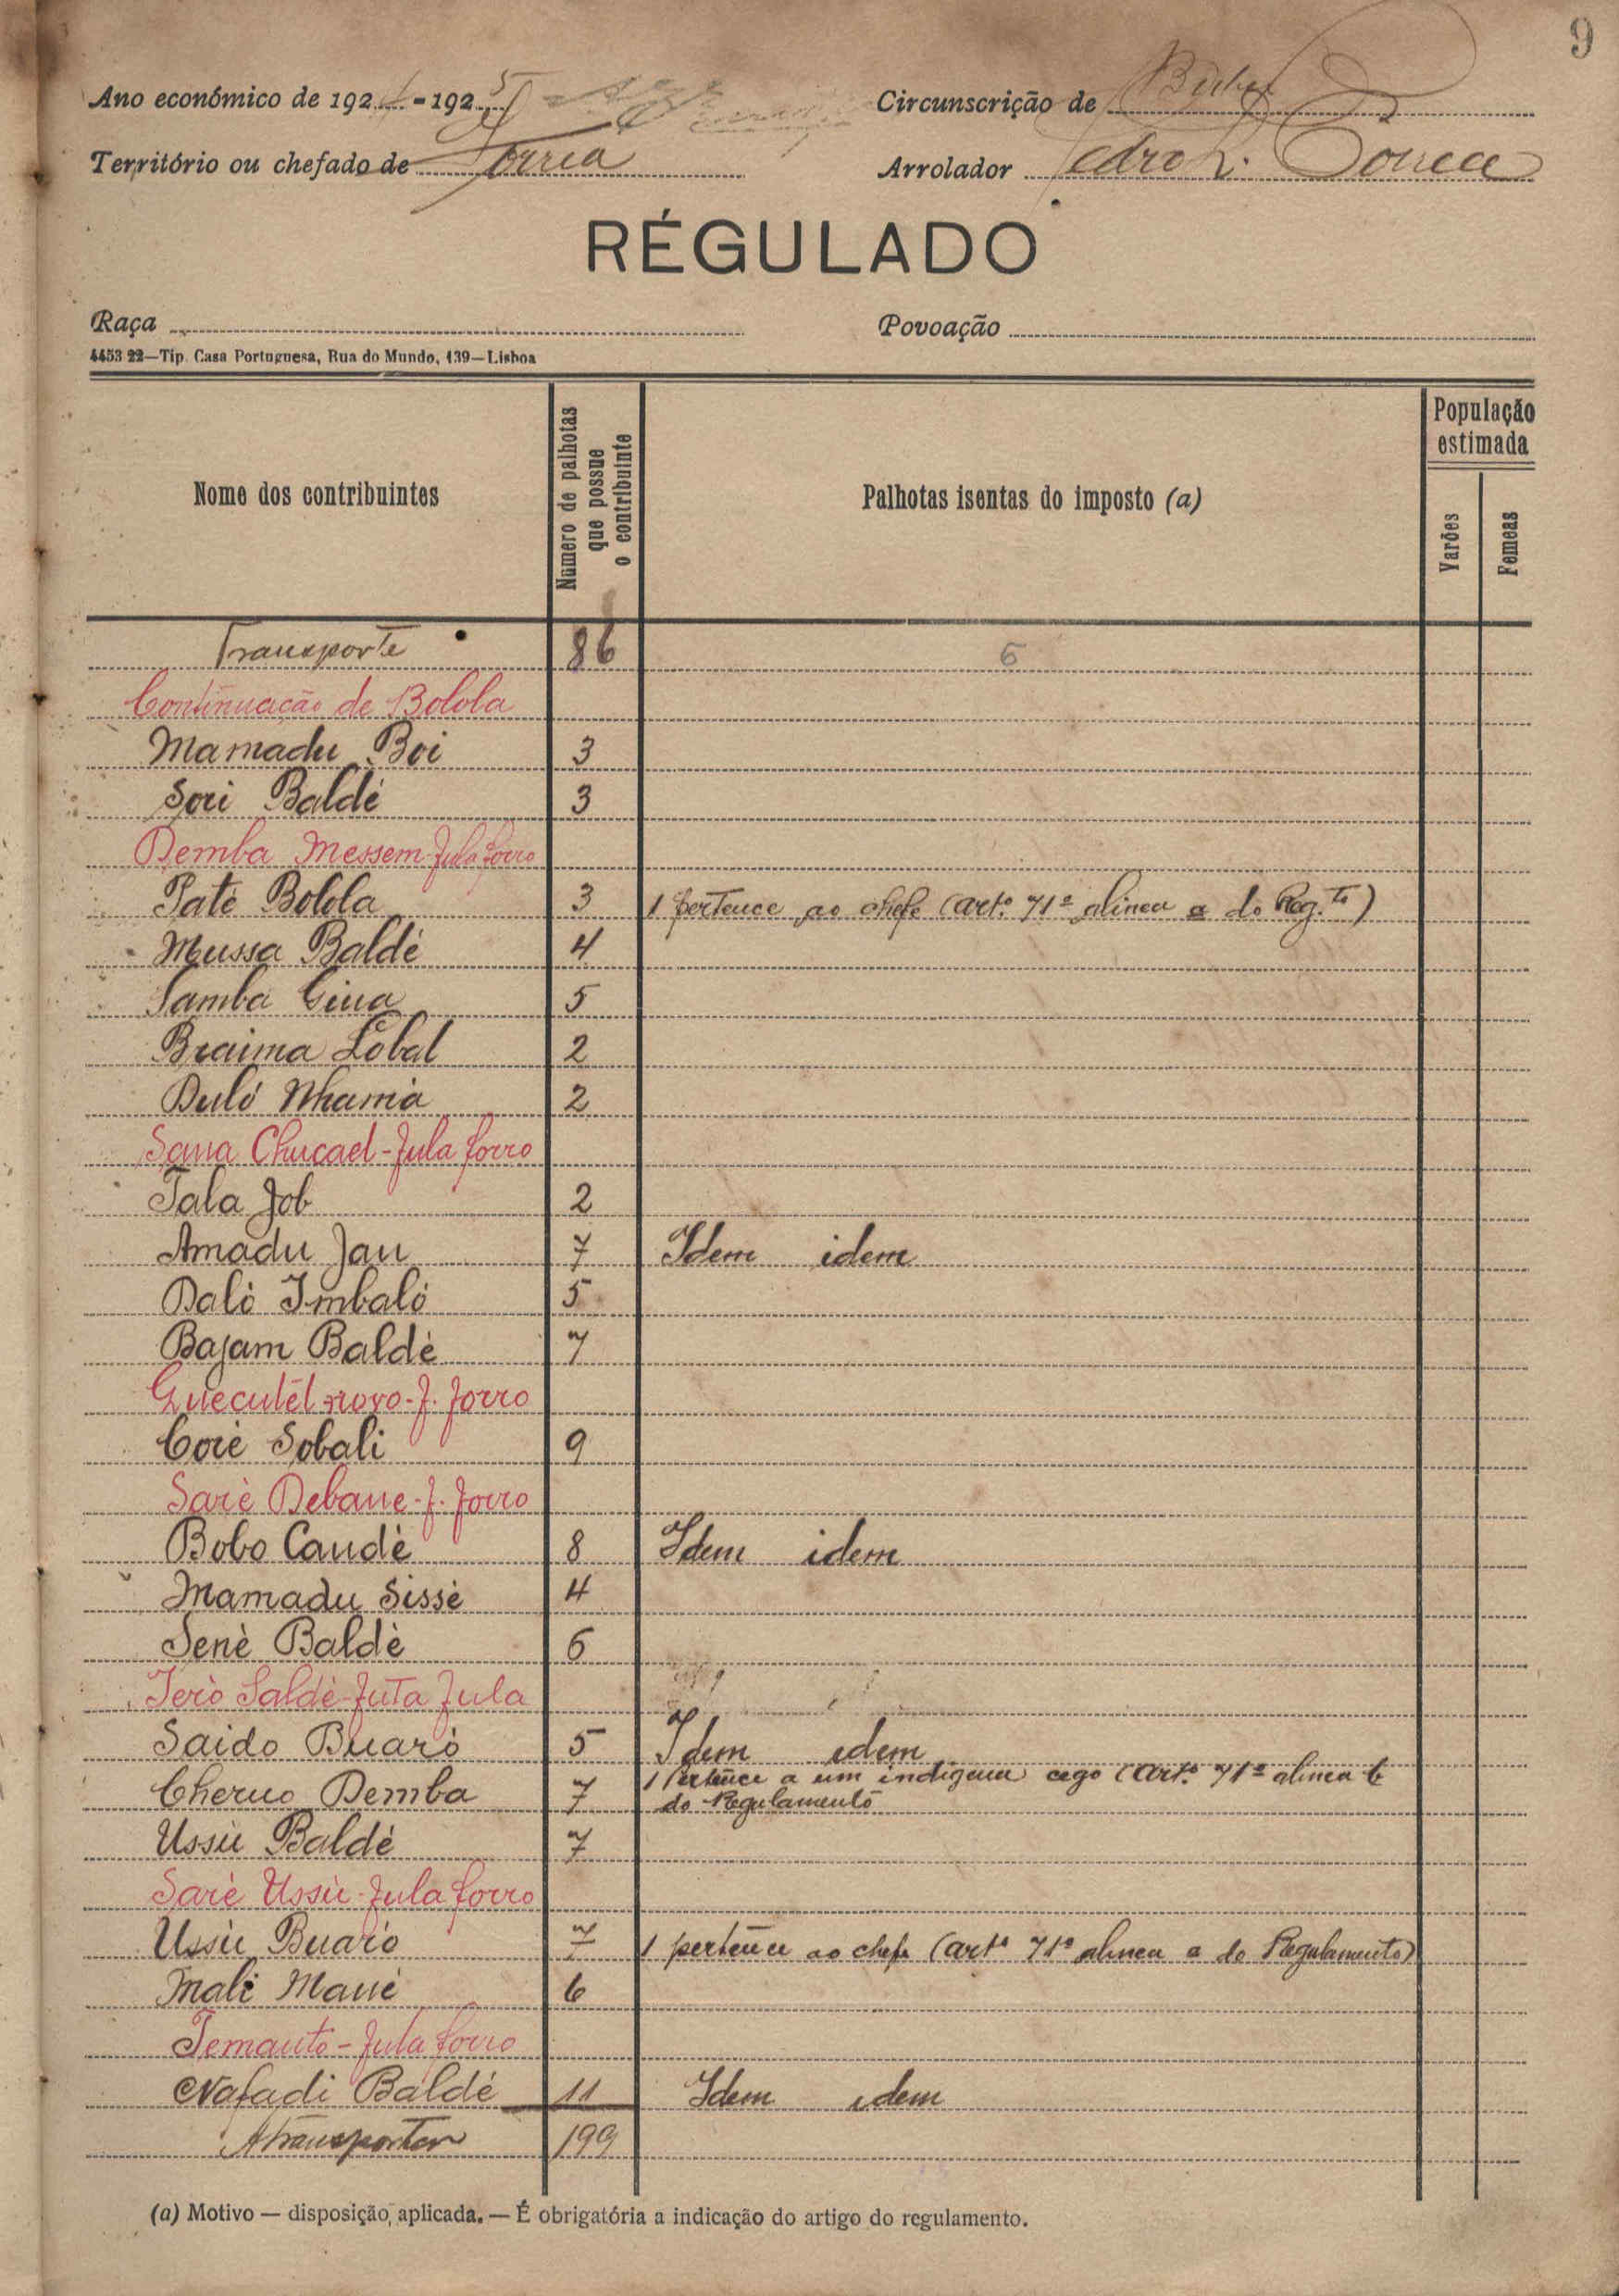 9
Ano económico de 192 - 1925 Circunscrição de
Território ou chefado de Forria Arrolador Pedro
RÉGULADO
Raça Povoação
4453 22—Tip. Casa Portuguesa, Rua do Mundo, 139—Lisboa
Nome dos contribuintes Número de palhotas que possue o contribuinte Palhotas isentas do imposto (a) População estimada
Varões Femeas
Transporte 86 6
Continuação de Bolola
Mamadu Boi 3
Sori Baldé 3
Demba Messem-fula forro
Paté Bolola 3 1 pertence ao chefe (artº 71º alinea a do Reg.to)
Mussa Baldé 4
Samba 5
Braima Lobal 2
Duló Nhamá 2
Sana Chucael-fula forro
Tala Job 2
Amadu Jau 7 Idem idem
Daló Imbaló 5
Bajam Baldé 7
Guecutél novo-f. forro
Coié Sobali 9
Saré Debane-f. forro
Bobo Candé 8 Idem idem
Mamadu Sissé 4
Sené Baldè 6
Saldé-futa fula
Saido Buaró 5 Idem idem
Cherno Demba 7 1 Pertence a um indigena cego (artº 71º alinea b
do Regulamento
Ussú Baldé 7
Saré Ussú-fula forro
Ussú Buaró 7 1 pertence ao chefe (artº 71º alinea a do Regulamento)
Mali Mané 6
Temanto-fula forro
Nafadi Baldé 11 Idem idem
A transportar 199
(a) Motivo — disposição aplicada. — É obrigatória a indicação do artigo do regulamento.